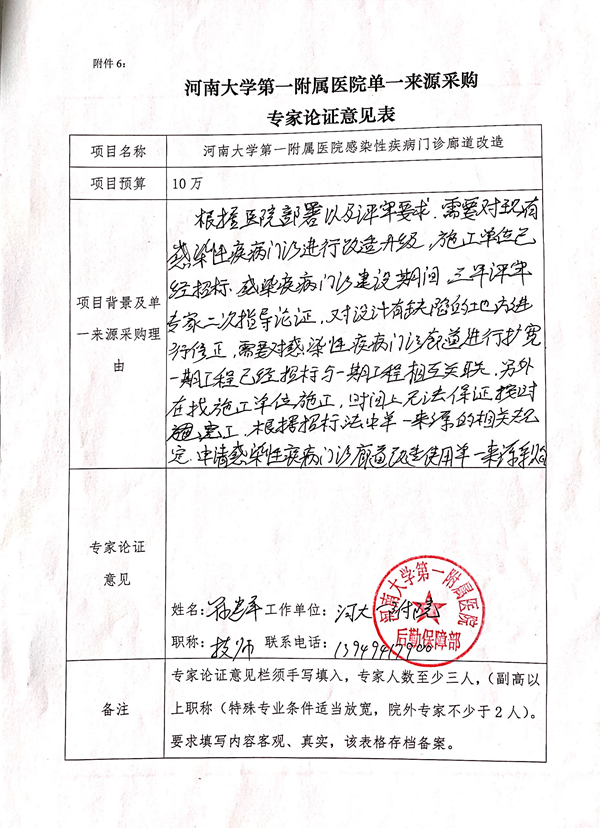 附件 6：
河南大学第一附属医院单一来源采购
专家论证意见表
项目名称 河南大学第一附属医院感染性疾病门诊廊道改造
项目预算 10 万
项目背景及单一来源采购理由
根据医院部署以及评审要求，需要对现有
感染性疾病门诊进行改造升级，施工单位已
经招标，感染疾病门诊建设期间，三年评审
专家二次指导论证，对设计有缺陷的地方进
行修正，需要对感染性疾病门诊廊道进行扩宽
一期工程已经招标与一期工程相互关联，另外
在找施工单位施工，时间上无法保证按时
完工，根据招标法中单一来源的相关规
定，申请感染性疾病门诊廊道改造使用单一来源采购
专家论证
意见
河南大学第一附属医院
后勤保障部
姓名： 工作单位：河大一附院
职称：技师 联系电话：13949417900
备注
专家论证意见栏须手写填入，专家人数至少三人，（副高以
上职称（特殊专业条件适当放宽，院外专家不少于 2 人）。
要求填写内容客观、真实，该表格存档备案。